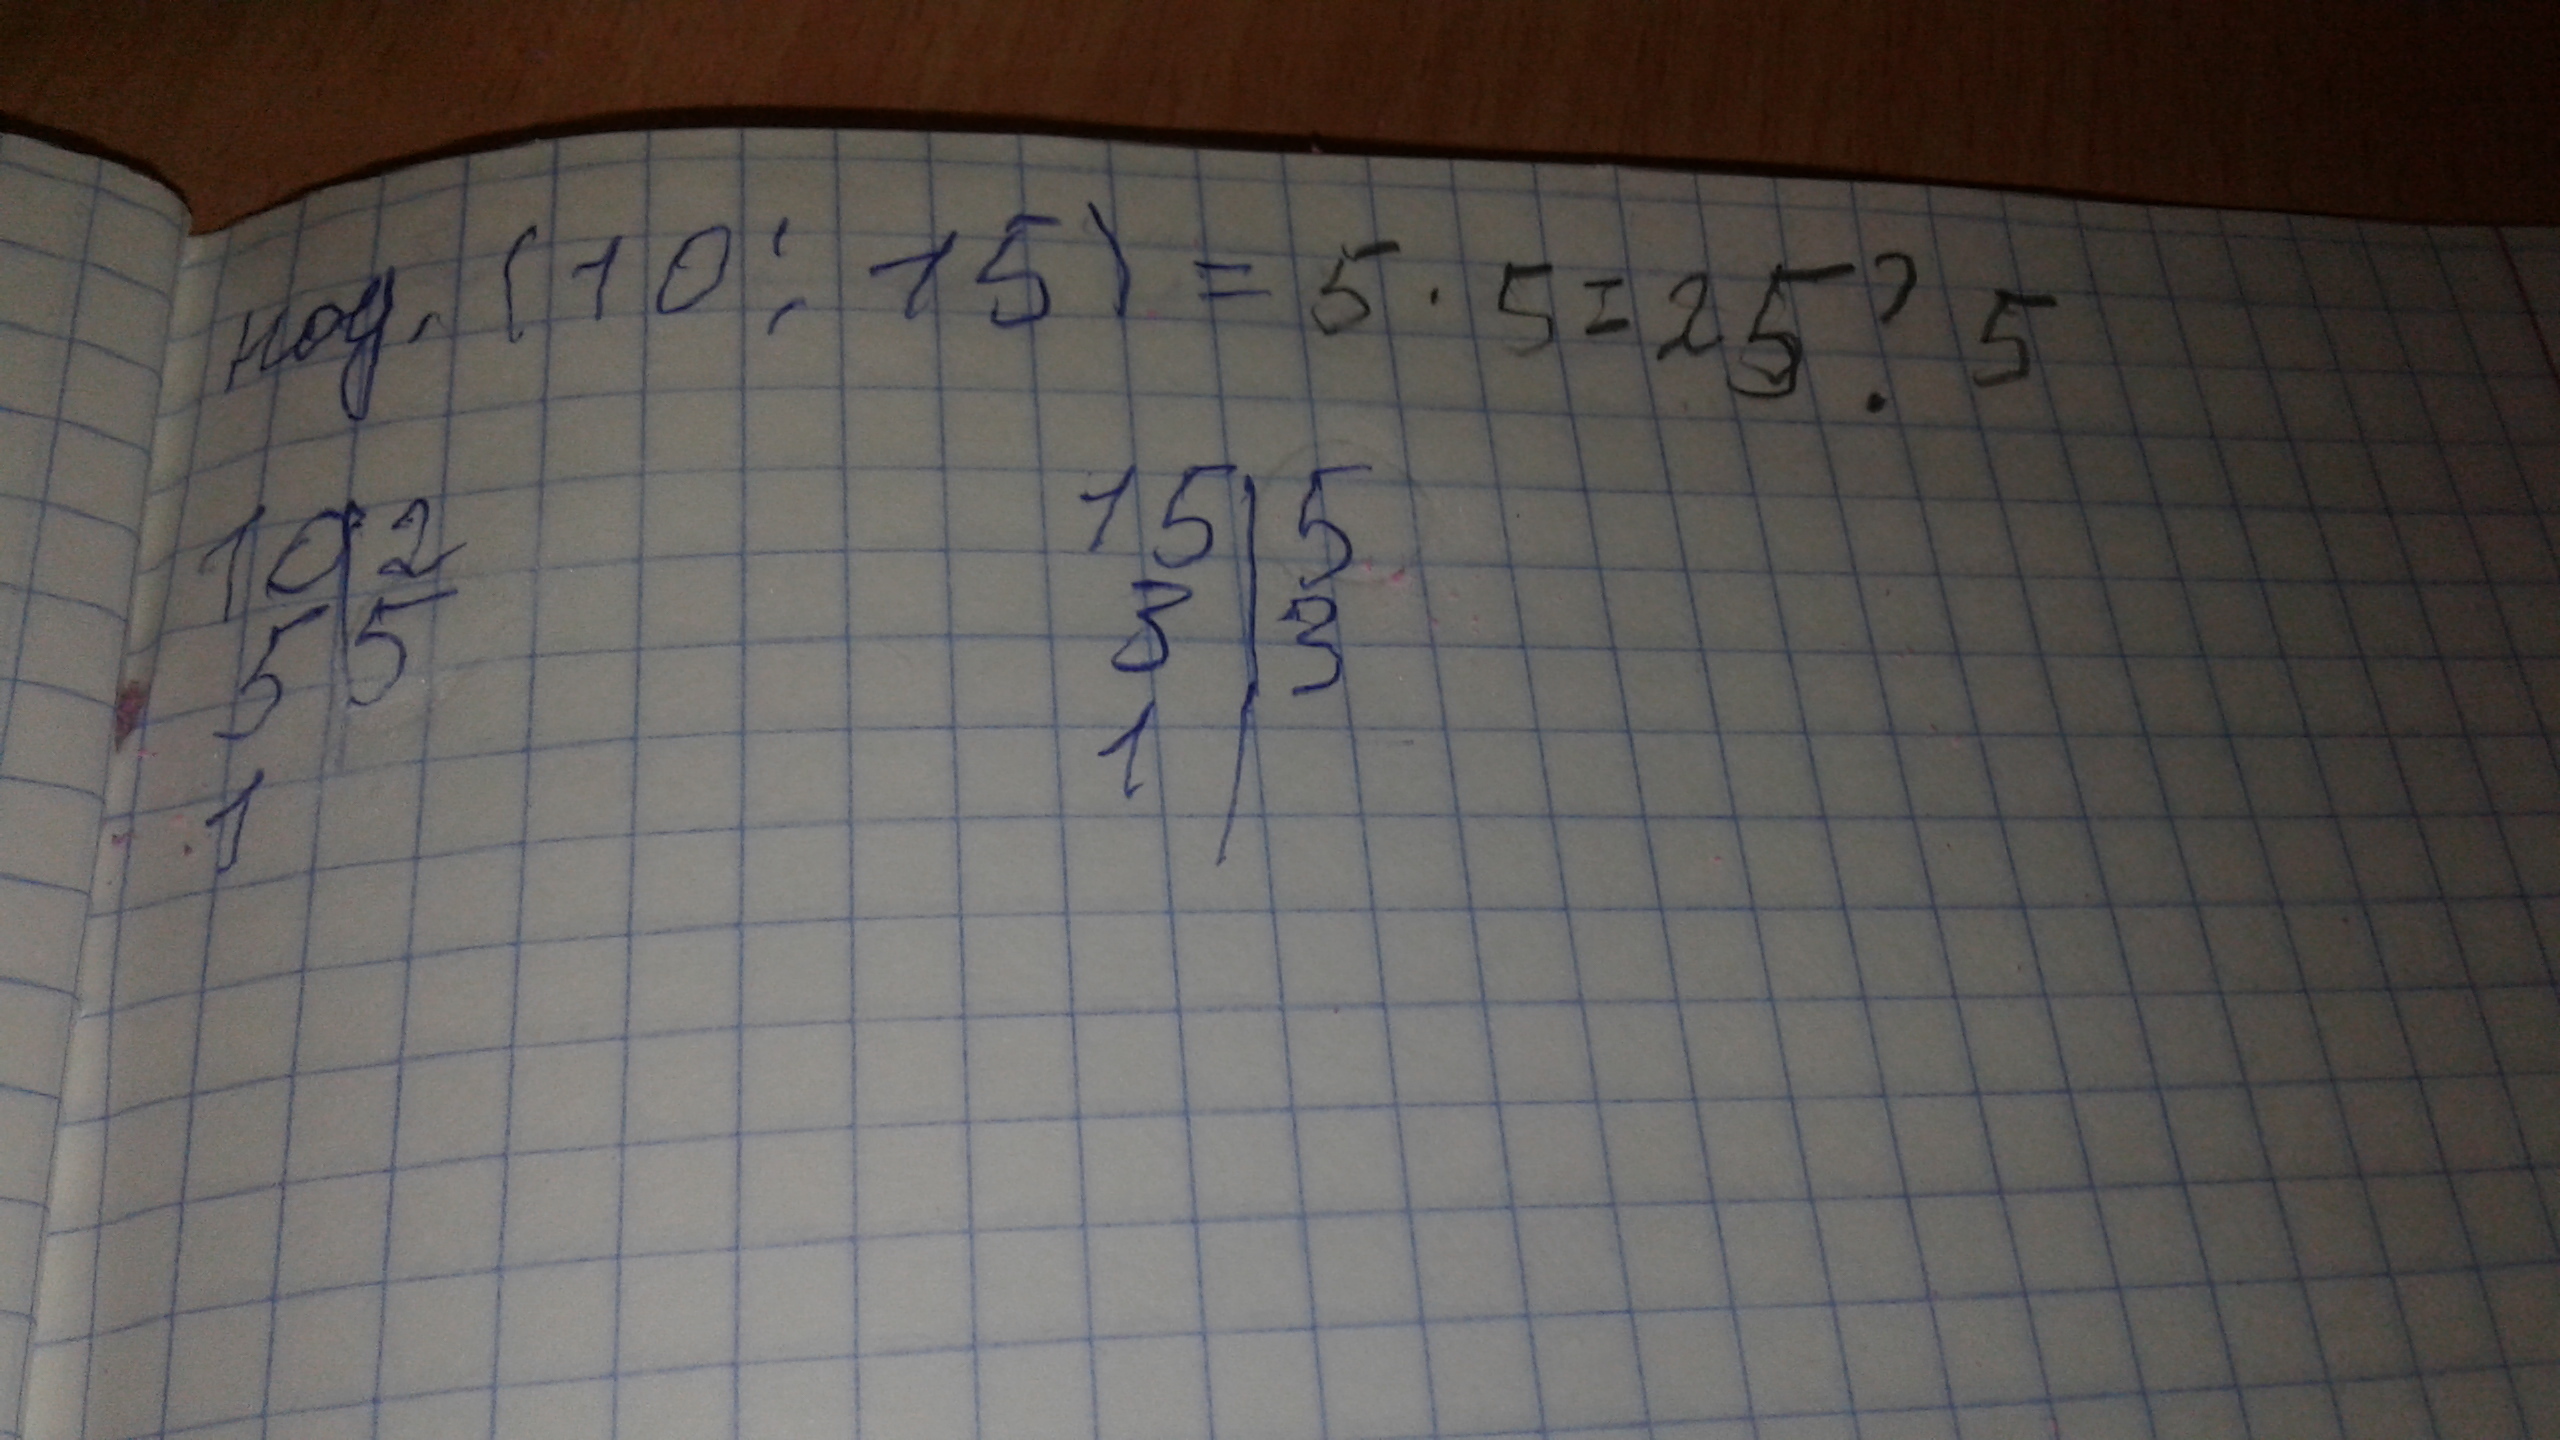 нод. (10; 15) = 5 · 5 = 25? 5
10|2 15|5
5|5 3|3
1 1|